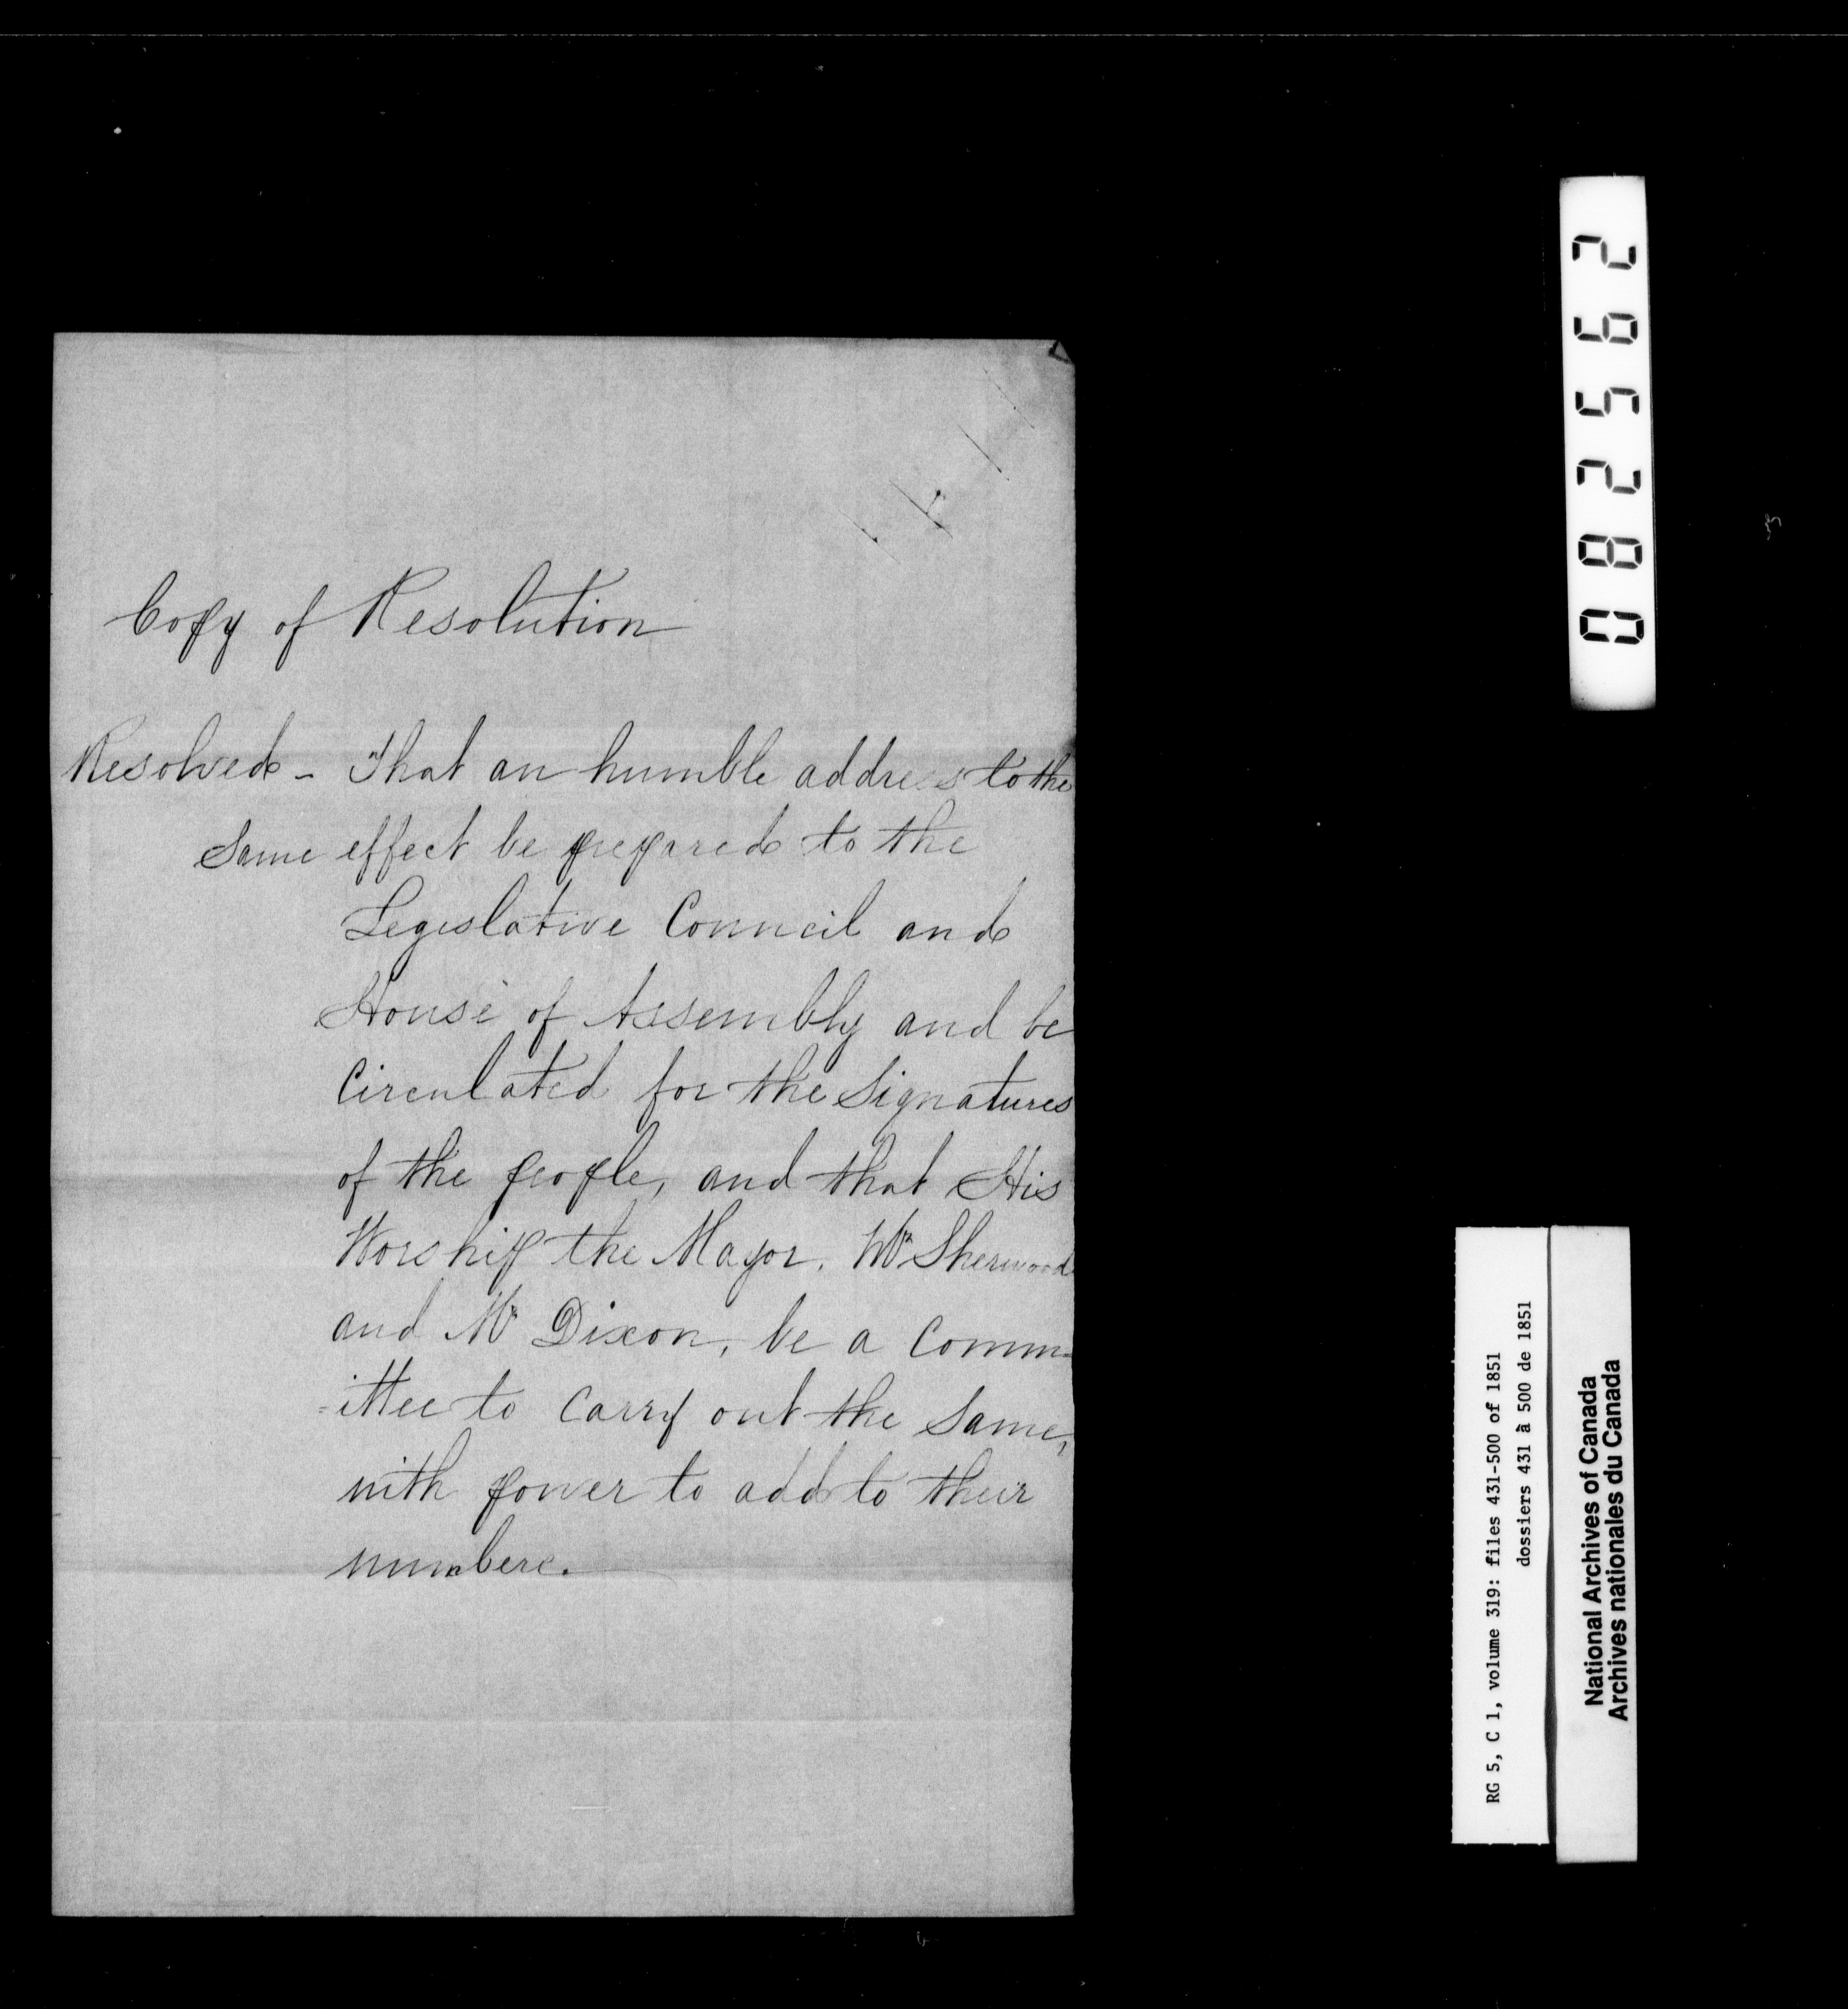 Copy of Resolution
Resolved - That an humble address to the
Same effect be prepared to the
Legislative Council and
House of Assembly and be
Circulated for the Signatures
of the people, and that His
Worship the Mayor. Mr Sherwood
and Mr Dixon, be a Comm-
-ittee to Carry out the Same,
with power to add to their
numbers.
082562
RG 5, C 1, volume 319: files 431-500 of 1851
dossiers 431 à 500 de 1851
National Archives of Canada
Archives nationales du Canada